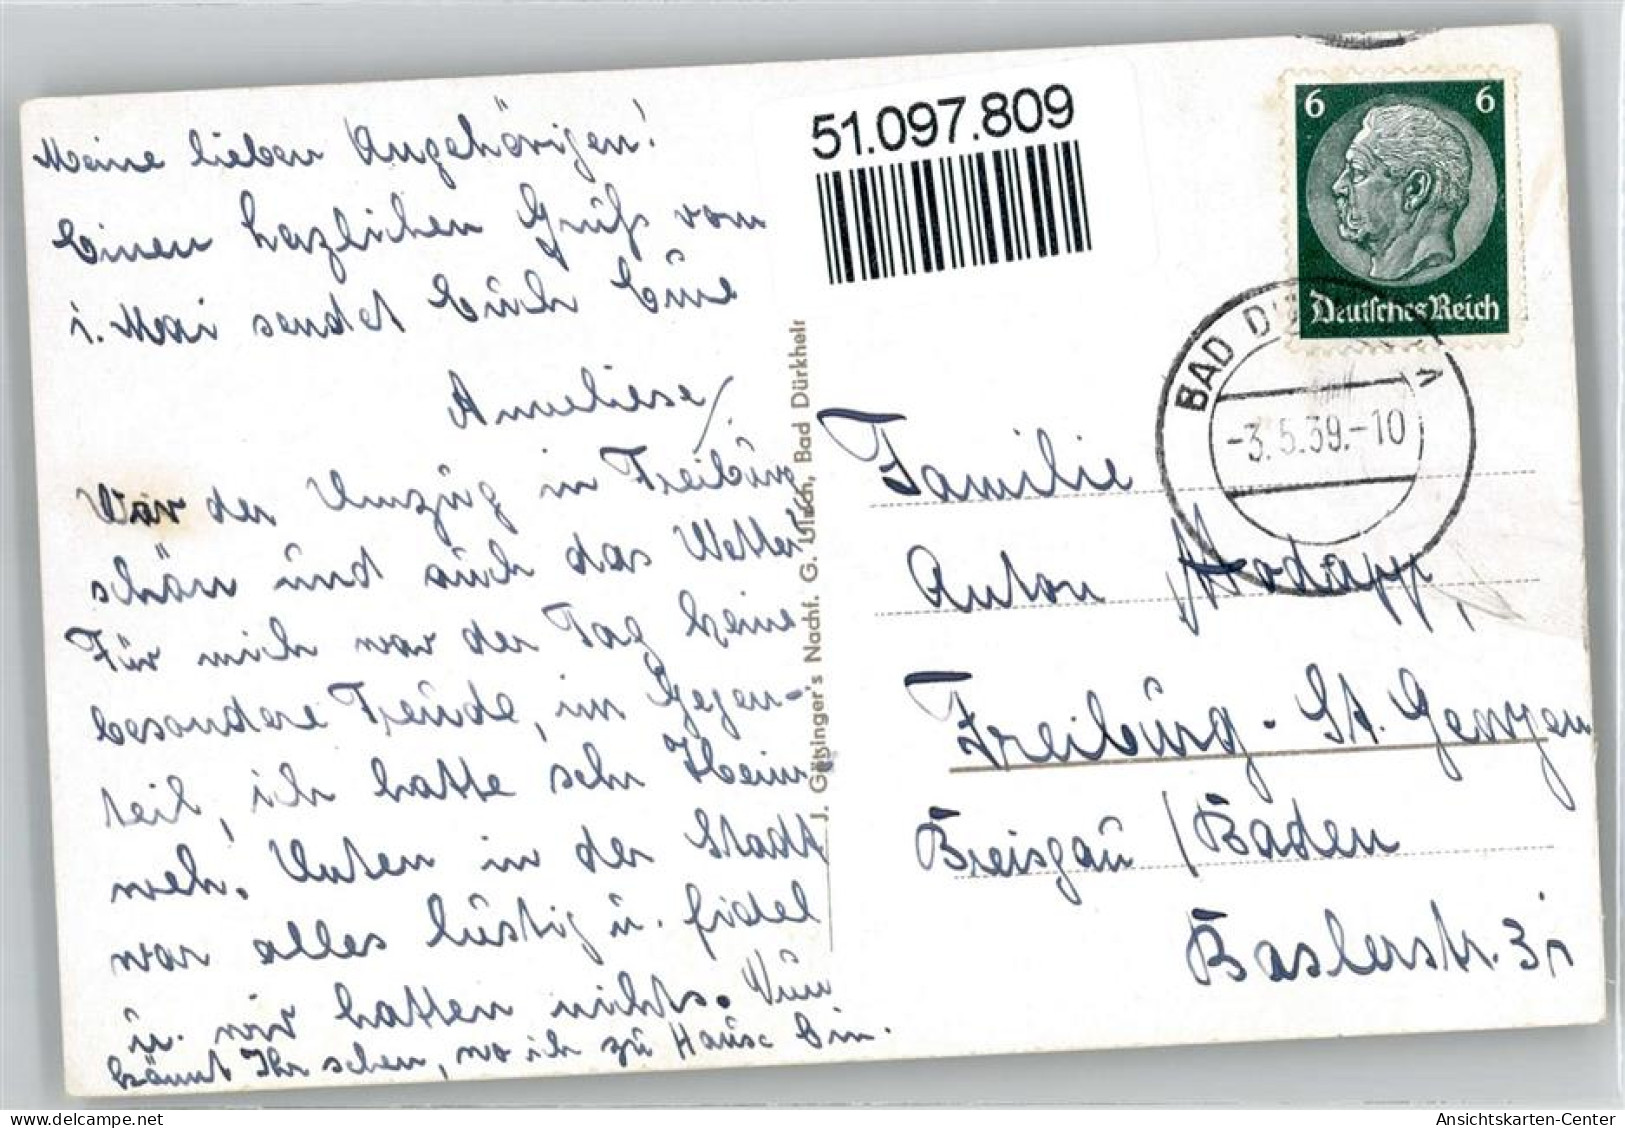 Meine lieben Angehörigen!
Einen herzlichen Gruß vom
1. Mai sendet Euch Eure
Anneliese
War der Umzug in Freiburg
schön und auch das Wetter
Für mich war der Tag keine
besondere Freude, im Gegen-
teil, ich hatte sehr Heim
weh. Unten in der Stadt
war alles lustig u. fidel
u. wir hatten nichts. Nun
könnt Ihr sehen, wo ich zu Hause bin.
J. Götzinger's Nachf. G. Ulrich, Bad Dürkheim
51.097.809
6 6
Deutsches Reich
BAD
-3.5.39.-10
Familie
Anton Hodapp,
Freiburg - St. Georgen
Breisgau / Baden
Baslerstr. 31
Ansichtskarten-Center
delcampe.net